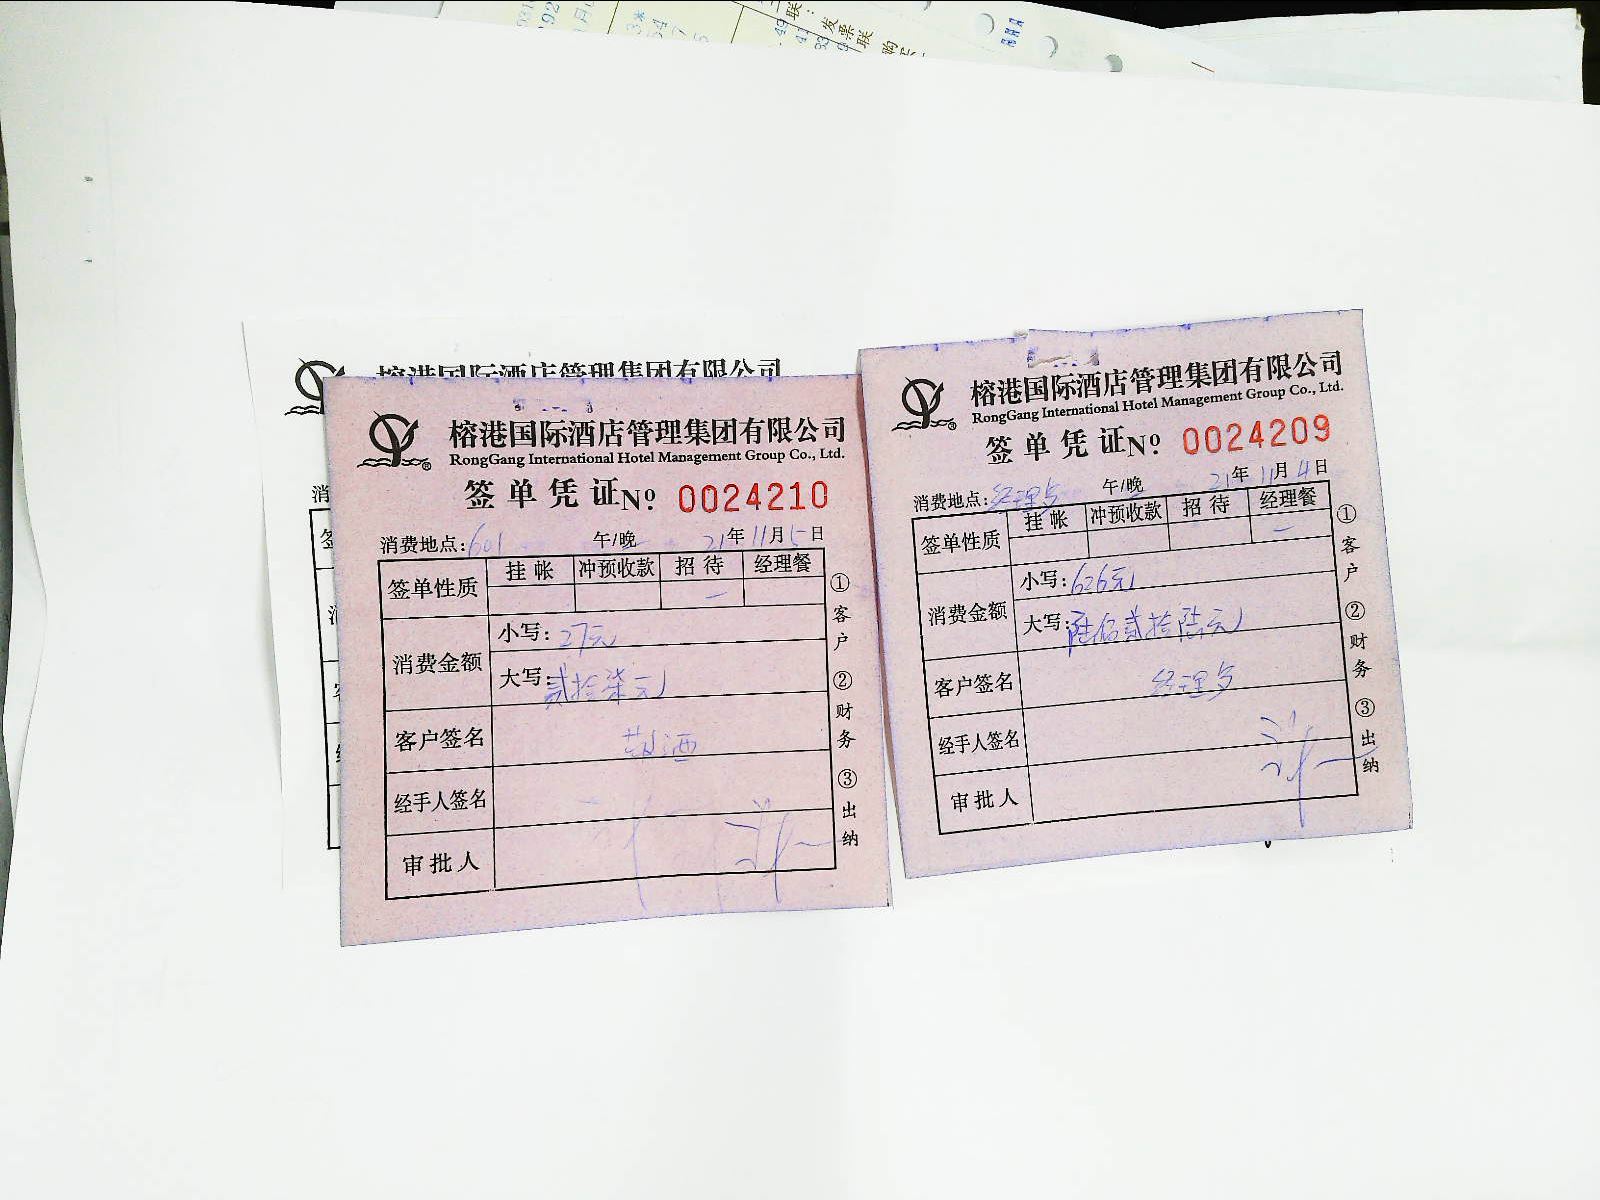 发票联
购
榕港国际酒店管理集团有限公司
榕港国际酒店管理集团有限公司
RongGang International Hotel Management Group Co., Ltd.
签单凭证 Nº 0024210
消费地点: 601 午/晚 21年11月5日
签单性质 挂帐 冲预收款 招待 经理餐
消费金额
小写: 27元
大写: 贰拾柒元
客户签名
经手人签名
审批人
①客户 ②财务 ③出纳
榕港国际酒店管理集团有限公司
RongGang International Hotel Management Group Co., Ltd.
签单凭证 Nº 0024209
消费地点: 经理 午/晚 21年11月4日
签单性质 挂帐 冲预收款 招待 经理餐
消费金额
小写: 626元
大写: 陆佰贰拾陆元
客户签名 经理
经手人签名
审批人
①客户 ②财务 ③出纳